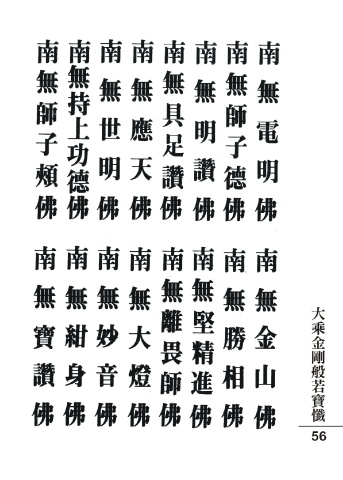 大乘金剛般若寶懺
56
南無電明佛
南無金山佛
南無師子德佛
南無勝相佛
南無明讚佛
南無堅精進佛
南無具足讚佛
南無離畏師佛
南無應天佛
南無大燈佛
南無世明佛
南無妙音佛
南無持上功德佛
南無紺身佛
南無師子頰佛
南無寶讚佛